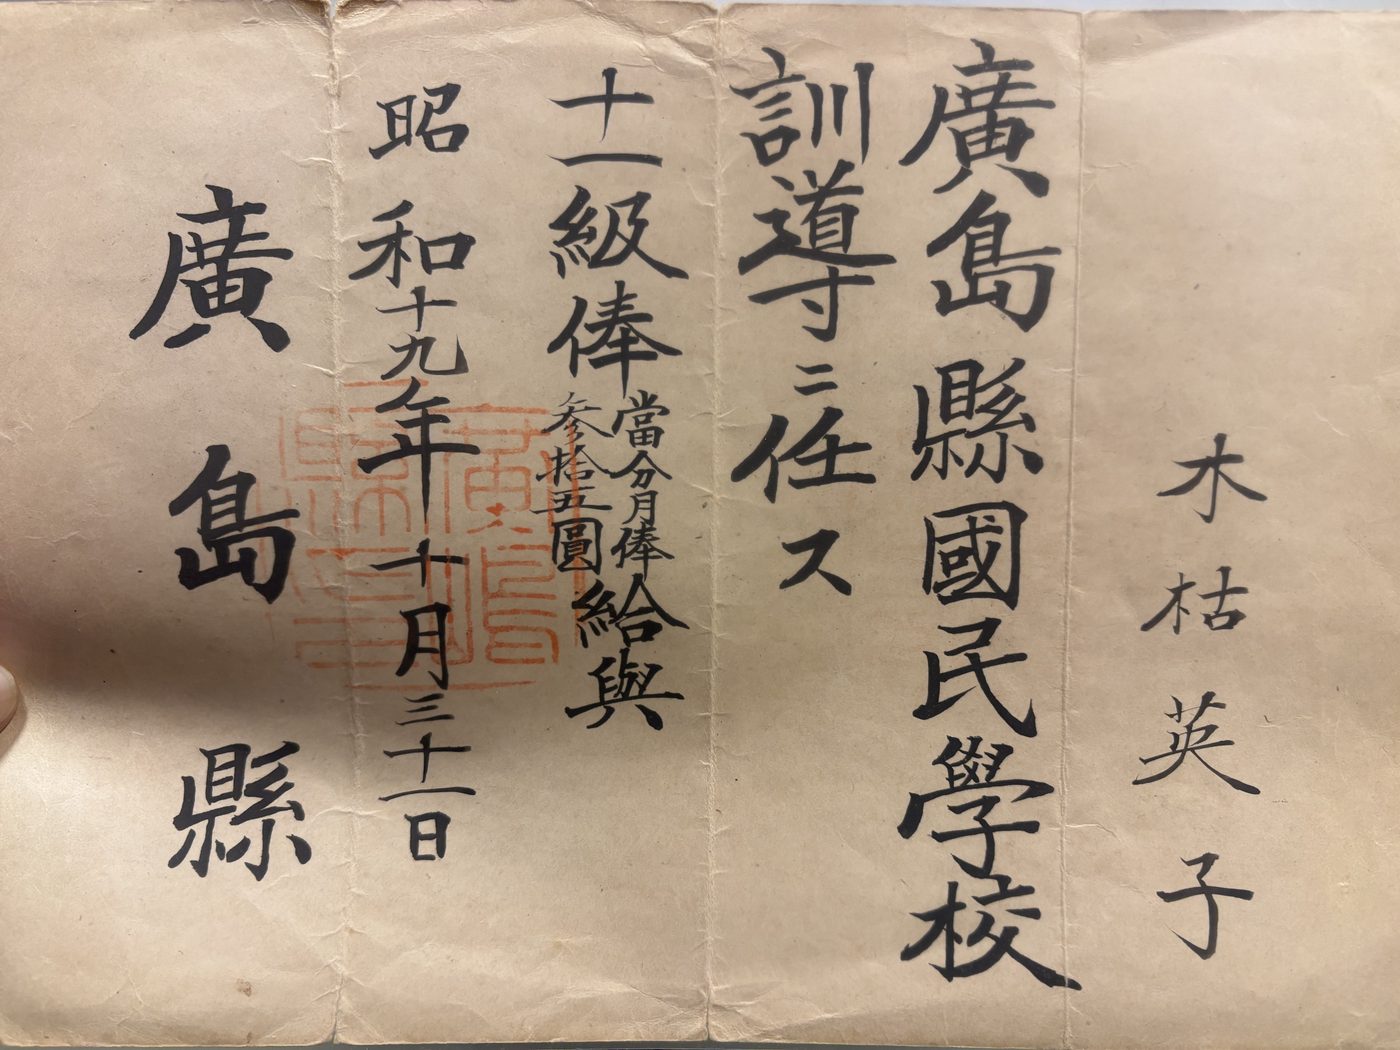 木枯英子
廣島縣國民學校
訓導ニ任ス
十一級俸
當分月俸
参拾五圓
給與
昭和十九年十月三十一日
廣島縣
廣島縣印